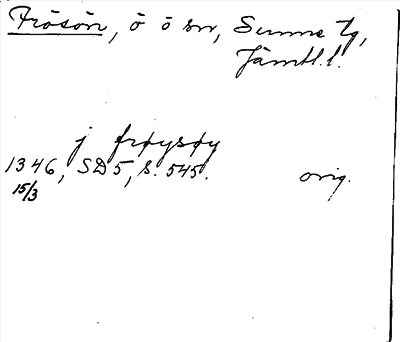 Frösön, ö o sn, Sunne tg,
Jämtl. l.
j frøysøy
1346, SD 5, s. 545. orig.
15/3